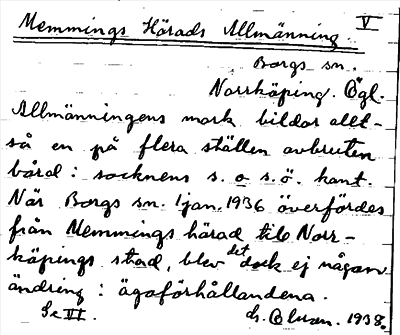 Memmings Härads Allmänning. V
Borgs sn.
Norrköping. Ögl.
Allmänningens mark bildar allt-
så en på flera ställen avbruten
bård i socknens s. o. s.ö. kant.
När Borgs sn. 1 jan. 1936 överfördes
från Memmings härad till Norr-
köpings stad, blev det dock ej någon
ändring i ägoförhållandena.
Se III. 1938.